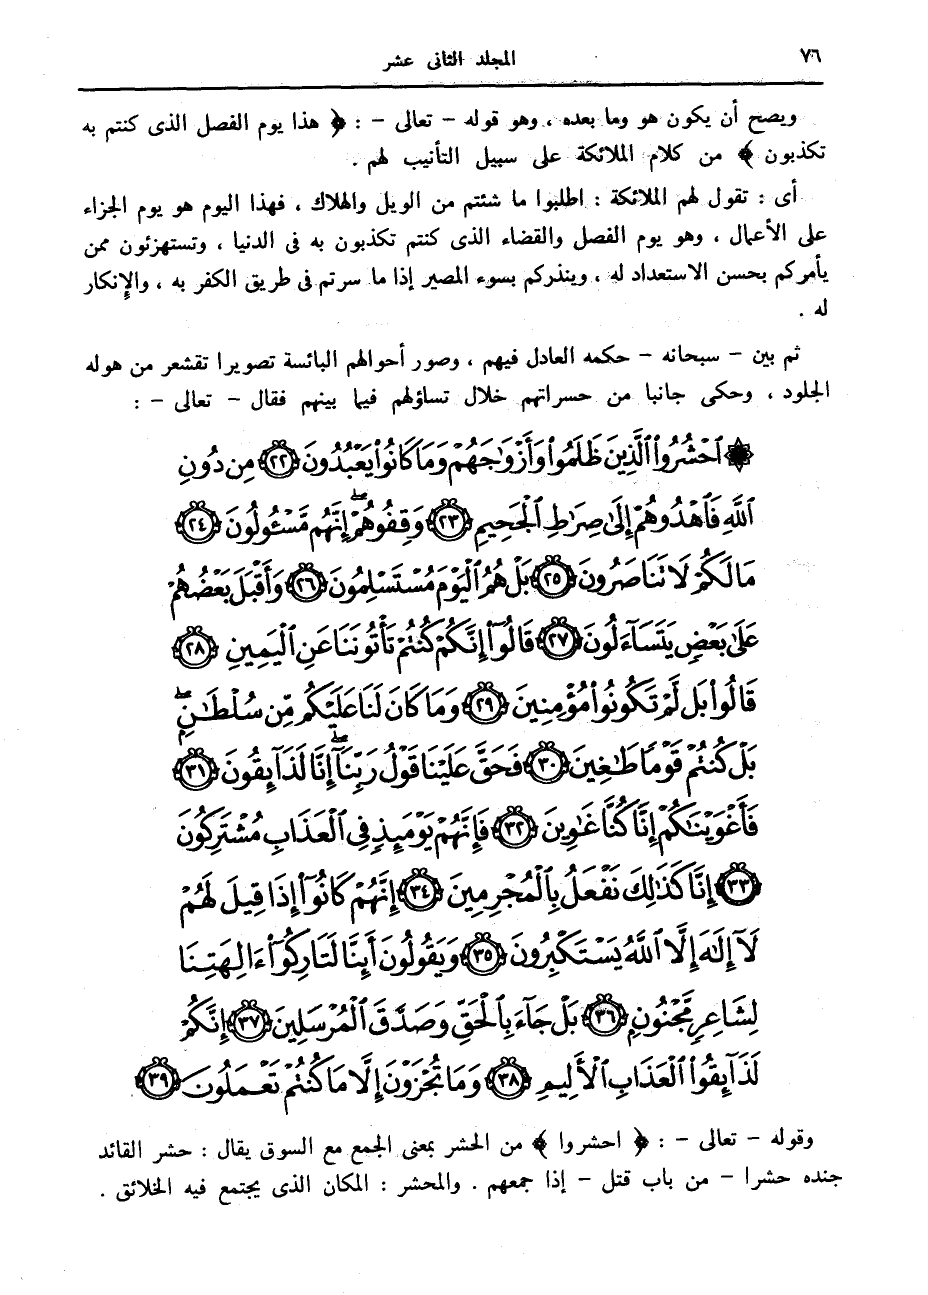 ٧٦
المجلد الثانى عشر
ويصح أن يكون هو وما بعده ، وهو قوله – تعالى – : ﴿ هذا يوم الفصل الذى كنتم به
تكذبون ﴾ من كلام الملائكة على سبيل التأنيب لهم .
أى : تقول لهم الملائكة : اطلبوا ما شئتم من الويل والهلاك ، فهذا اليوم هو يوم الجزاء
على الأعمال ، وهو يوم الفصل والقضاء الذى كنتم تكذبون به فى الدنيا ، وتستهزئون ممن
يأمركم بحسن الاستعداد له ، وينذركم بسوء المصير إذا ما سرتم فى طريق الكفر به ، والإنكار
له .
ثم بين – سبحانه – حكمه العادل فيهم ، وصور أحوالهم البائسة تصويرا تقشعر من هوله
الجلود ، وحكى جانبا من حسراتهم خلال تساؤلهم فيما بينهم فقال – تعالى – :
۞ ٱحْشُرُوا۟ ٱلَّذِينَ ظَلَمُوا۟ وَأَزْوَٰجَهُمْ وَمَا كَانُوا۟ يَعْبُدُونَ ٢٢ مِن دُونِ
ٱللَّهِ فَٱهْدُوهُمْ إِلَىٰ صِرَٰطِ ٱلْجَحِيمِ ٢٣ وَقِفُوهُمْ ۖ إِنَّهُم مَّسْـُٔولُونَ ٢٤
مَا لَكُمْ لَا تَنَاصَرُونَ ٢٥ بَلْ هُمُ ٱلْيَوْمَ مُسْتَسْلِمُونَ ٢٦ وَأَقْبَلَ بَعْضُهُمْ
عَلَىٰ بَعْضٍ يَتَسَآءَلُونَ ٢٧ قَالُوٓا۟ إِنَّكُمْ كُنتُمْ تَأْتُونَنَا عَنِ ٱلْيَمِينِ ٢٨
قَالُوا۟ بَل لَّمْ تَكُونُوا۟ مُؤْمِنِينَ ٢٩ وَمَا كَانَ لَنَا عَلَيْكُم مِّن سُلْطَٰنٍۭ ۖ
بَلْ كُنتُمْ قَوْمًا طَٰغِينَ ٣٠ فَحَقَّ عَلَيْنَا قَوْلُ رَبِّنَآ ۖ إِنَّا لَذَآئِقُونَ ٣١
فَأَغْوَيْنَٰكُمْ إِنَّا كُنَّا غَٰوِينَ ٣٢ فَإِنَّهُمْ يَوْمَئِذٍ فِى ٱلْعَذَابِ مُشْتَرِكُونَ
٣٣ إِنَّا كَذَٰلِكَ نَفْعَلُ بِٱلْمُجْرِمِينَ ٣٤ إِنَّهُمْ كَانُوٓا۟ إِذَا قِيلَ لَهُمْ
لَآ إِلَٰهَ إِلَّا ٱللَّهُ يَسْتَكْبِرُونَ ٣٥ وَيَقُولُونَ أَئِنَّا لَتَارِكُوٓا۟ ءَالِهَتِنَا
لِشَاعِرٍ مَّجْنُونٍۭ ٣٦ بَلْ جَآءَ بِٱلْحَقِّ وَصَدَّقَ ٱلْمُرْسَلِينَ ٣٧ إِنَّكُمْ
لَذَآئِقُوا۟ ٱلْعَذَابِ ٱلْأَلِيمِ ٣٨ وَمَا تُجْزَوْنَ إِلَّا مَا كُنتُمْ تَعْمَلُونَ ٣٩
وقوله – تعالى – : ﴿ احشروا ﴾ من الحشر بمعنى الجمع مع السوق يقال : حشر القائد
جنده حشرا – من باب قتل – إذا جمعهم . والمحشر : المكان الذى يجتمع فيه الخلائق .